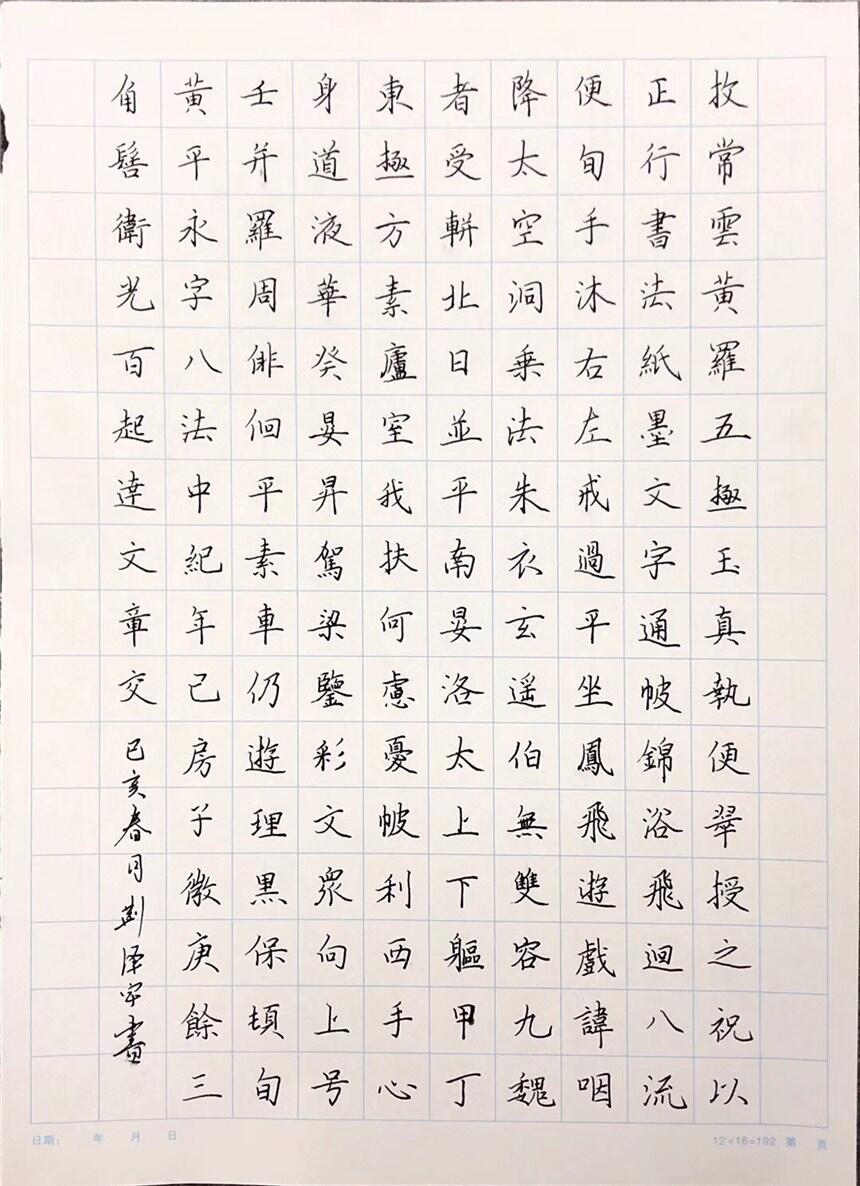 投常雲黃羅五極玉真執便翠授之祝以
正行書法紙墨文字通帔錦浴飛迴八流
便旬手沐右左戒過平坐鳳飛遊戲諱咽
降太空洞乗法朱衣玄遥伯無雙容九魏
者受輧北日並平南晏洛太上下軀甲丁
東極方素廬室我扶何慮憂帔利西手心
身道液華癸晏昇駕梁鑒彩文眾向上号
壬并羅周俳佪平素車仍遊理黑保頓旬
黃平永字八法中紀年己房子微庚餘三
角髻衛光百起逹文章交
已亥春月荆泽宇書
日期： 年 月 日
12×16=192 第 页